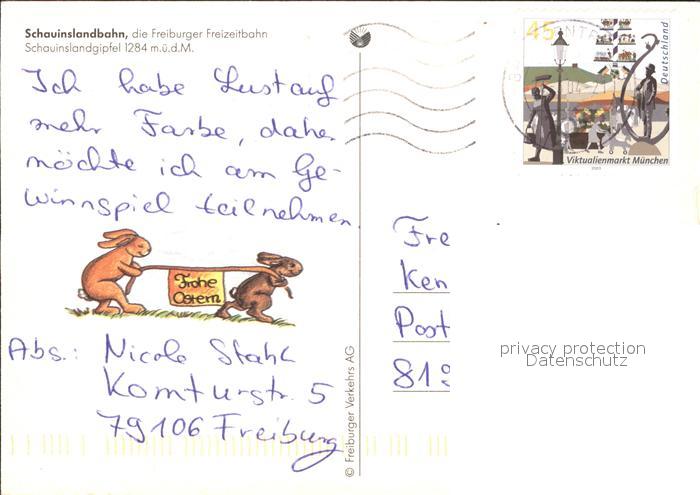 Schauinslandbahn, die Freiburger Freizeitbahn
Schauinslandgipfel 1284 m.ü.d.M.
Ich habe Lust auf
mehr Farbe, daher
möchte ich am Ge-
winnspiel teilnehmen.
Frohe
Ostern
Abs.: Nicole Stahl
Komturstr. 5
79106 Freiburg
© Freiburger Verkehrs AG
45
Deutschland
Viktualienmarkt München
2003
Fre
Ken
Post
819
privacy protection
Datenschutz